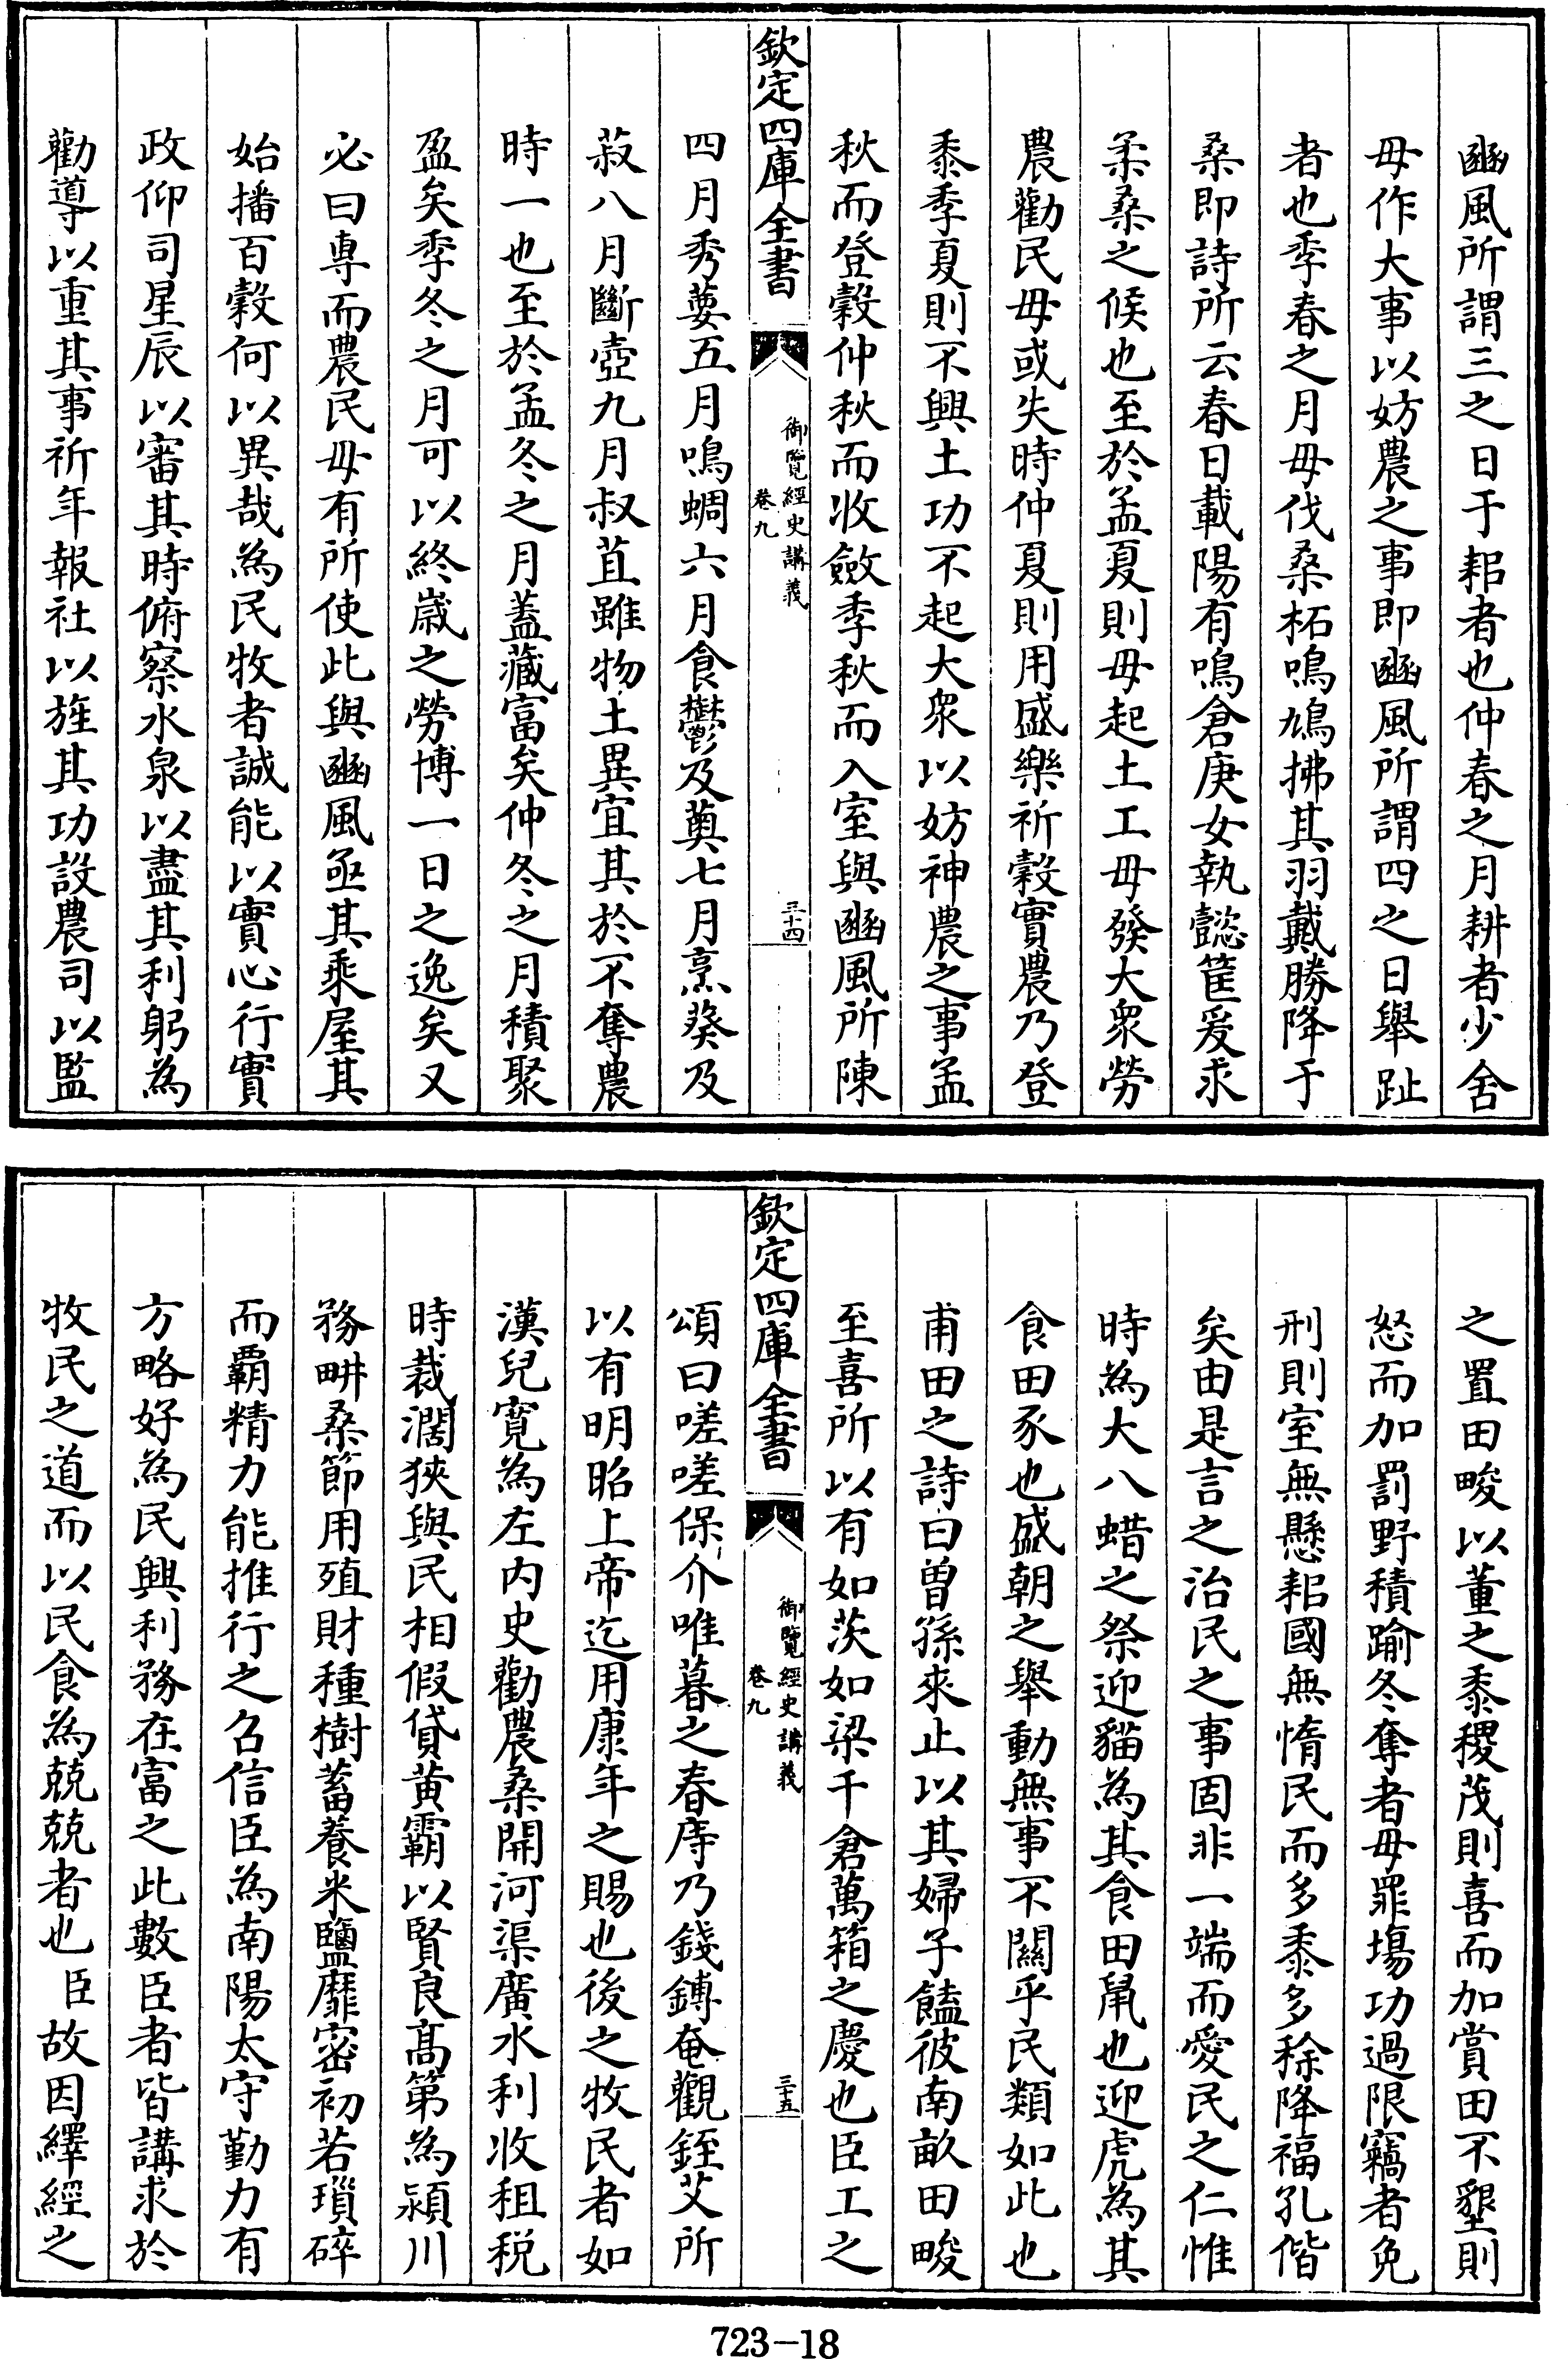 豳風所謂三之日于耜者也仲春之月耕者少舍
毋作大事以妨農之事即豳風所謂四之日舉趾
者也季春之月毋伐桑柘鳴鳩拂其羽戴勝降于
桑即詩所云春日載陽有鳴倉庚女執懿筐爰求
柔桑之候也至於孟夏則毋起土工毋發大衆勞
農勸民毋或失時仲夏則用盛樂祈穀實農乃登
黍季夏則不興土功不起大衆以妨神農之事孟
秋而登穀仲秋而收斂季秋而入室與豳風所陳
欽定四庫全書
御覽經史講義
卷九
三十四
四月秀葽五月鳴蜩六月食鬱及薁七月烹葵及
菽八月斷壺九月叔苴雖物土異宜其於不奪農
時一也至於孟冬之月蓋藏富矣仲冬之月積聚
盈矣季冬之月可以終歲之勞博一日之逸矣又
必曰專而農民毋有所使此與豳風亟其乘屋其
始播百穀何以異哉為民牧者誠能以實心行實
政仰司星辰以審其時俯察水泉以盡其利躬為
勸導以重其事祈年報社以旌其功設農司以監
之置田畯以董之黍稷茂則喜而加賞田不墾則
怒而加罰野積踰冬奪者毋罪場功過限竊者免
刑則室無懸耜國無惰民而多黍多稌降福孔偕
矣由是言之治民之事固非一端而愛民之仁惟
時為大八蜡之祭迎貓為其食田鼠也迎虎為其
食田豕也盛朝之舉動無事不關乎民類如此也
甫田之詩曰曾孫來止以其婦子饁彼南畝田畯
至喜所以有如茨如梁千倉萬箱之慶也臣工之
欽定四庫全書
御覽經史講義
卷九
三十五
頌曰嗟嗟保介唯暮之春庤乃錢鎛奄觀銍艾所
以有明昭上帝迄用康年之賜也後之牧民者如
漢兒寬為左内史勸農桑開河渠廣水利收租税
時裁濶狹與民相假貸黄霸以賢良髙第為潁川
務畊桑節用殖財種樹蓄養米鹽靡密初若瑣碎
而霸精力能推行之召信臣為南陽太守勤力有
方略好為民興利務在富之此數臣者皆講求於
牧民之道而以民食為兢兢者也臣故因繹經之
723-18